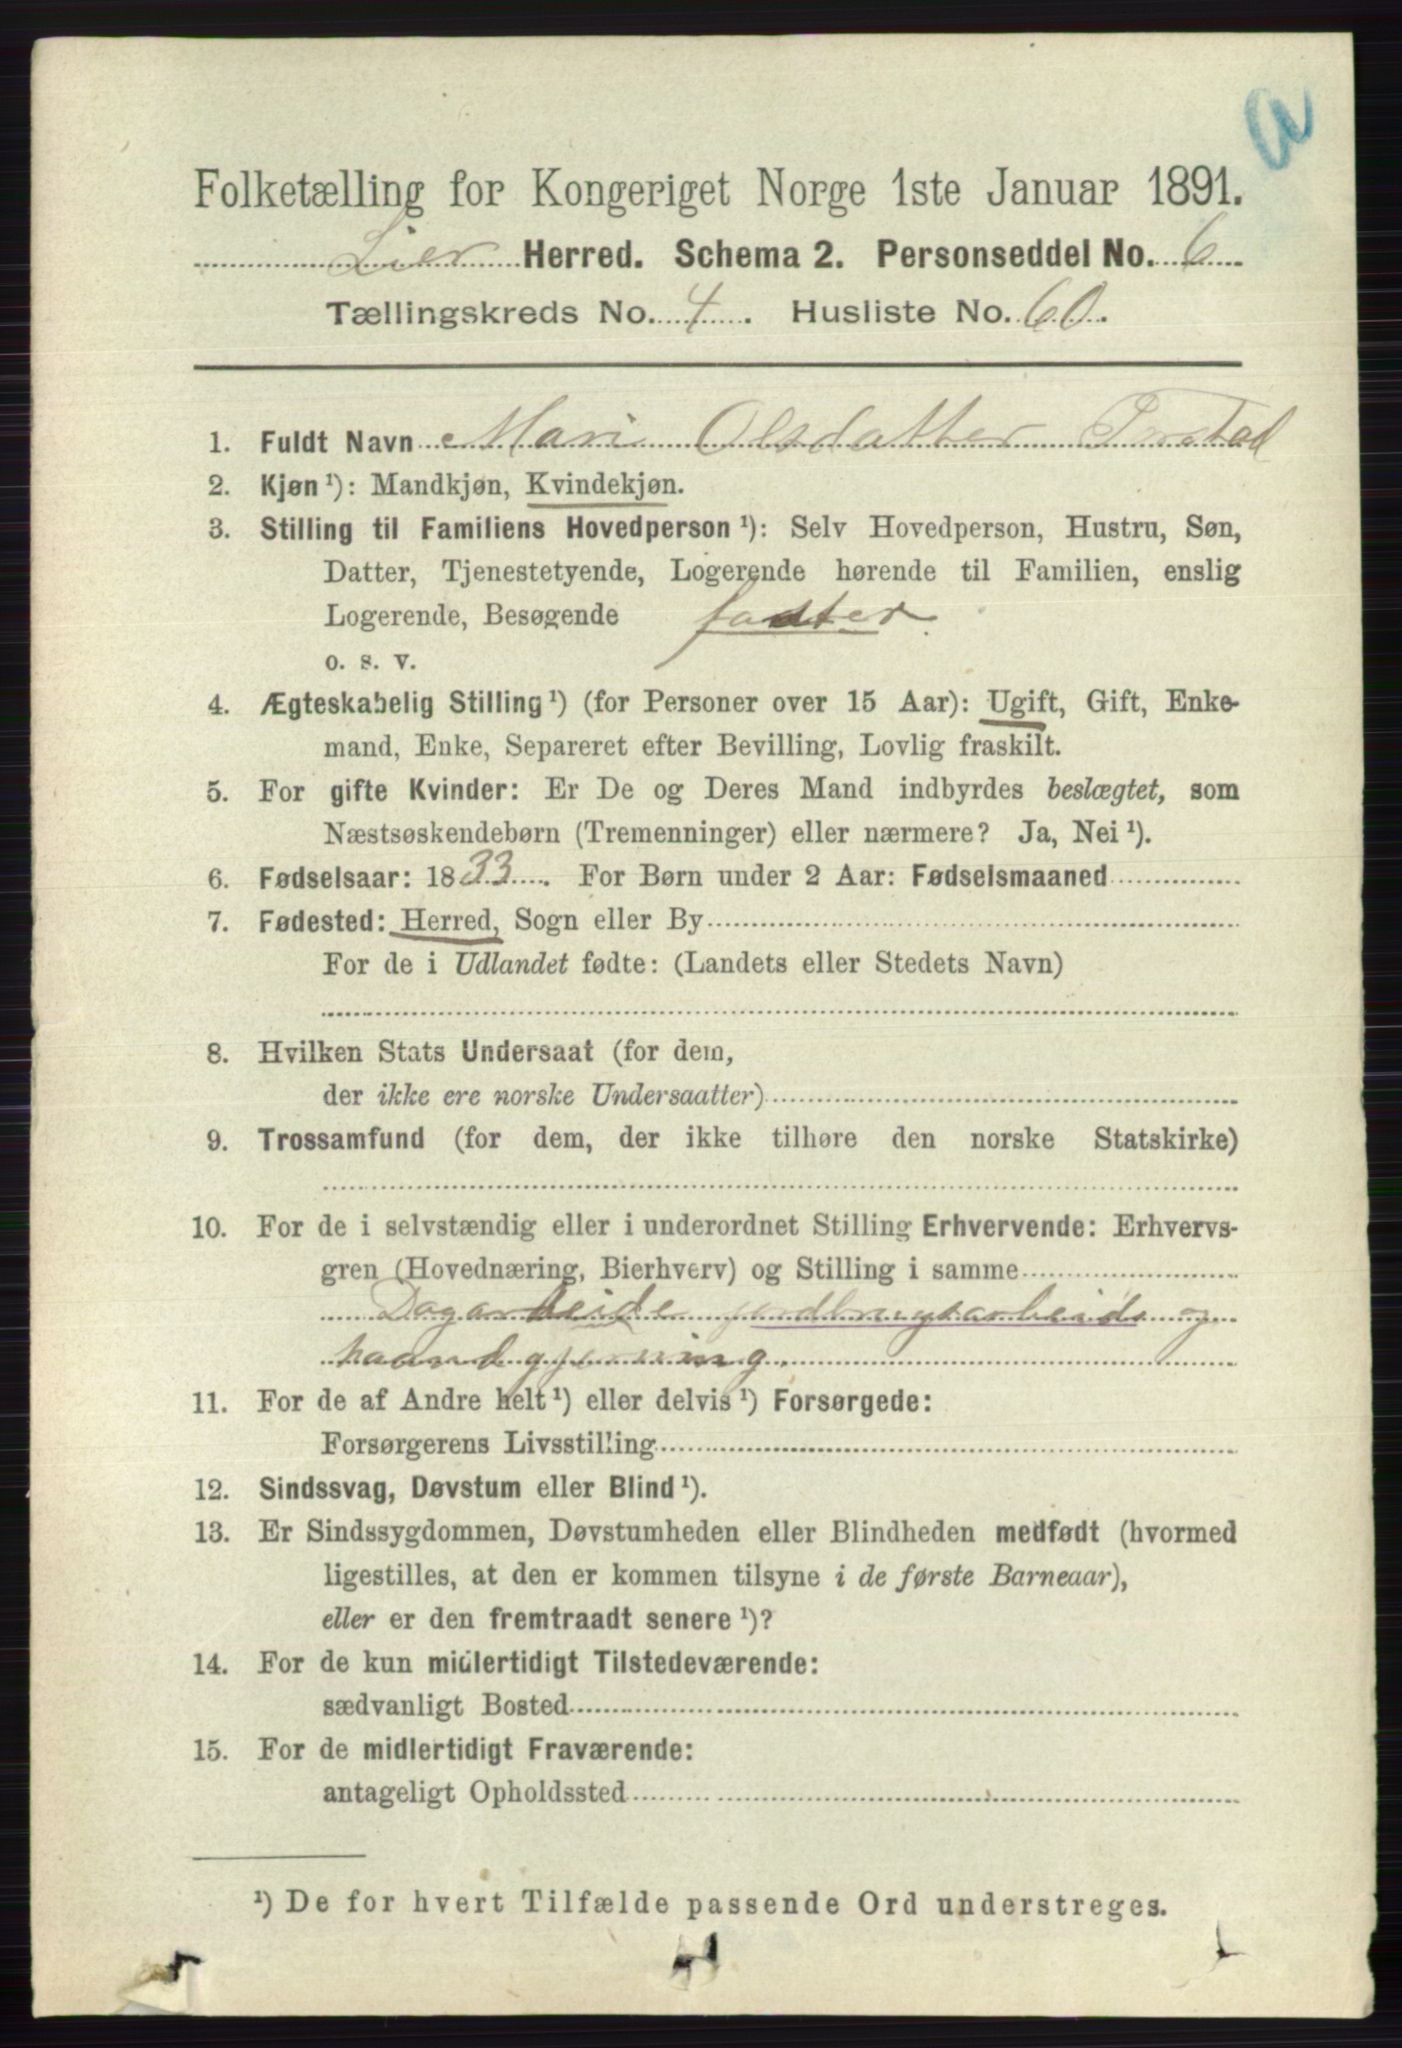 a
Folketælling for Kongeriget Norge 1ste Januar 1891.
Lier Herred. Schema 2. Personseddel No. 6
Tællingskreds No. 4. Husliste No. 60.
1. Fuldt Navn Mari Olsdatter
2. Kjøn ¹): Mandkjøn, Kvindekjøn.
3. Stilling til Familiens Hovedperson ¹): Selv Hovedperson, Hustru, Søn,
Datter, Tjenestetyende, Logerende hørende til Familien, enslig
Logerende, Besøgende
o. s. v.
4. Ægteskabelig Stilling ¹) (for Personer over 15 Aar): Ugift, Gift, Enke-
mand, Enke, Separeret efter Bevilling, Lovlig fraskilt.
5. For gifte Kvinder: Er De og Deres Mand indbyrdes beslægtet, som
Næstsøskendebørn (Tremenninger) eller nærmere? Ja, Nei ¹).
6. Fødselsaar: 1833. For Børn under 2 Aar: Fødselsmaaned
7. Fødested: Herred, Sogn eller By
For de i Udlandet fødte: (Landets eller Stedets Navn)
8. Hvilken Stats Undersaat (for dem,
der ikke ere norske Undersaatter)
9. Trossamfund (for dem, der ikke tilhøre den norske Statskirke)
10. For de i selvstændig eller i underordnet Stilling Erhvervende: Erhvervs-
gren (Hovednæring, Bierhverv) og Stilling i samme
Dagarbeide jordbrugsarbeide og
haandgjerning.
11. For de af Andre helt ¹) eller delvis ¹) Forsørgede:
Forsørgerens Livsstilling
12. Sindssvag, Døvstum eller Blind ¹).
13. Er Sindssygdommen, Døvstumheden eller Blindheden medfødt (hvormed
ligestilles, at den er kommen tilsyne i de første Barneaar),
eller er den fremtraadt senere ¹)?
14. For de kun midlertidigt Tilstedeværende:
sædvanligt Bosted
15. For de midlertidigt Fraværende:
antageligt Opholdssted
¹) De for hvert Tilfælde passende Ord understreges.